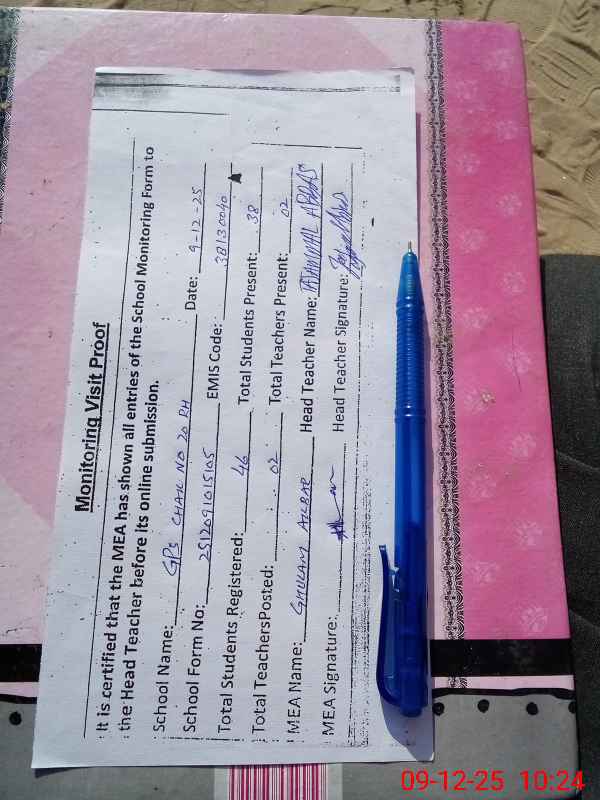 Monitoring Visit Proof
It is certified that the MEA has shown all entries of the School Monitoring Form to
the Head Teacher before its online submission.
School Name: GPS CHAK NO 20 RH Date: 9-12-25
School Form No: 2512091015105 EMIS Code: 38130040
Total Students Registered: 46 Total Students Present: 38
Total TeachersPosted: 02 Total Teachers Present: 02
MEA Name: GHULAM AKBAR Head Teacher Name: ABBAS
MEA Signature: Head Teacher Signature:
09-12-25 10:24